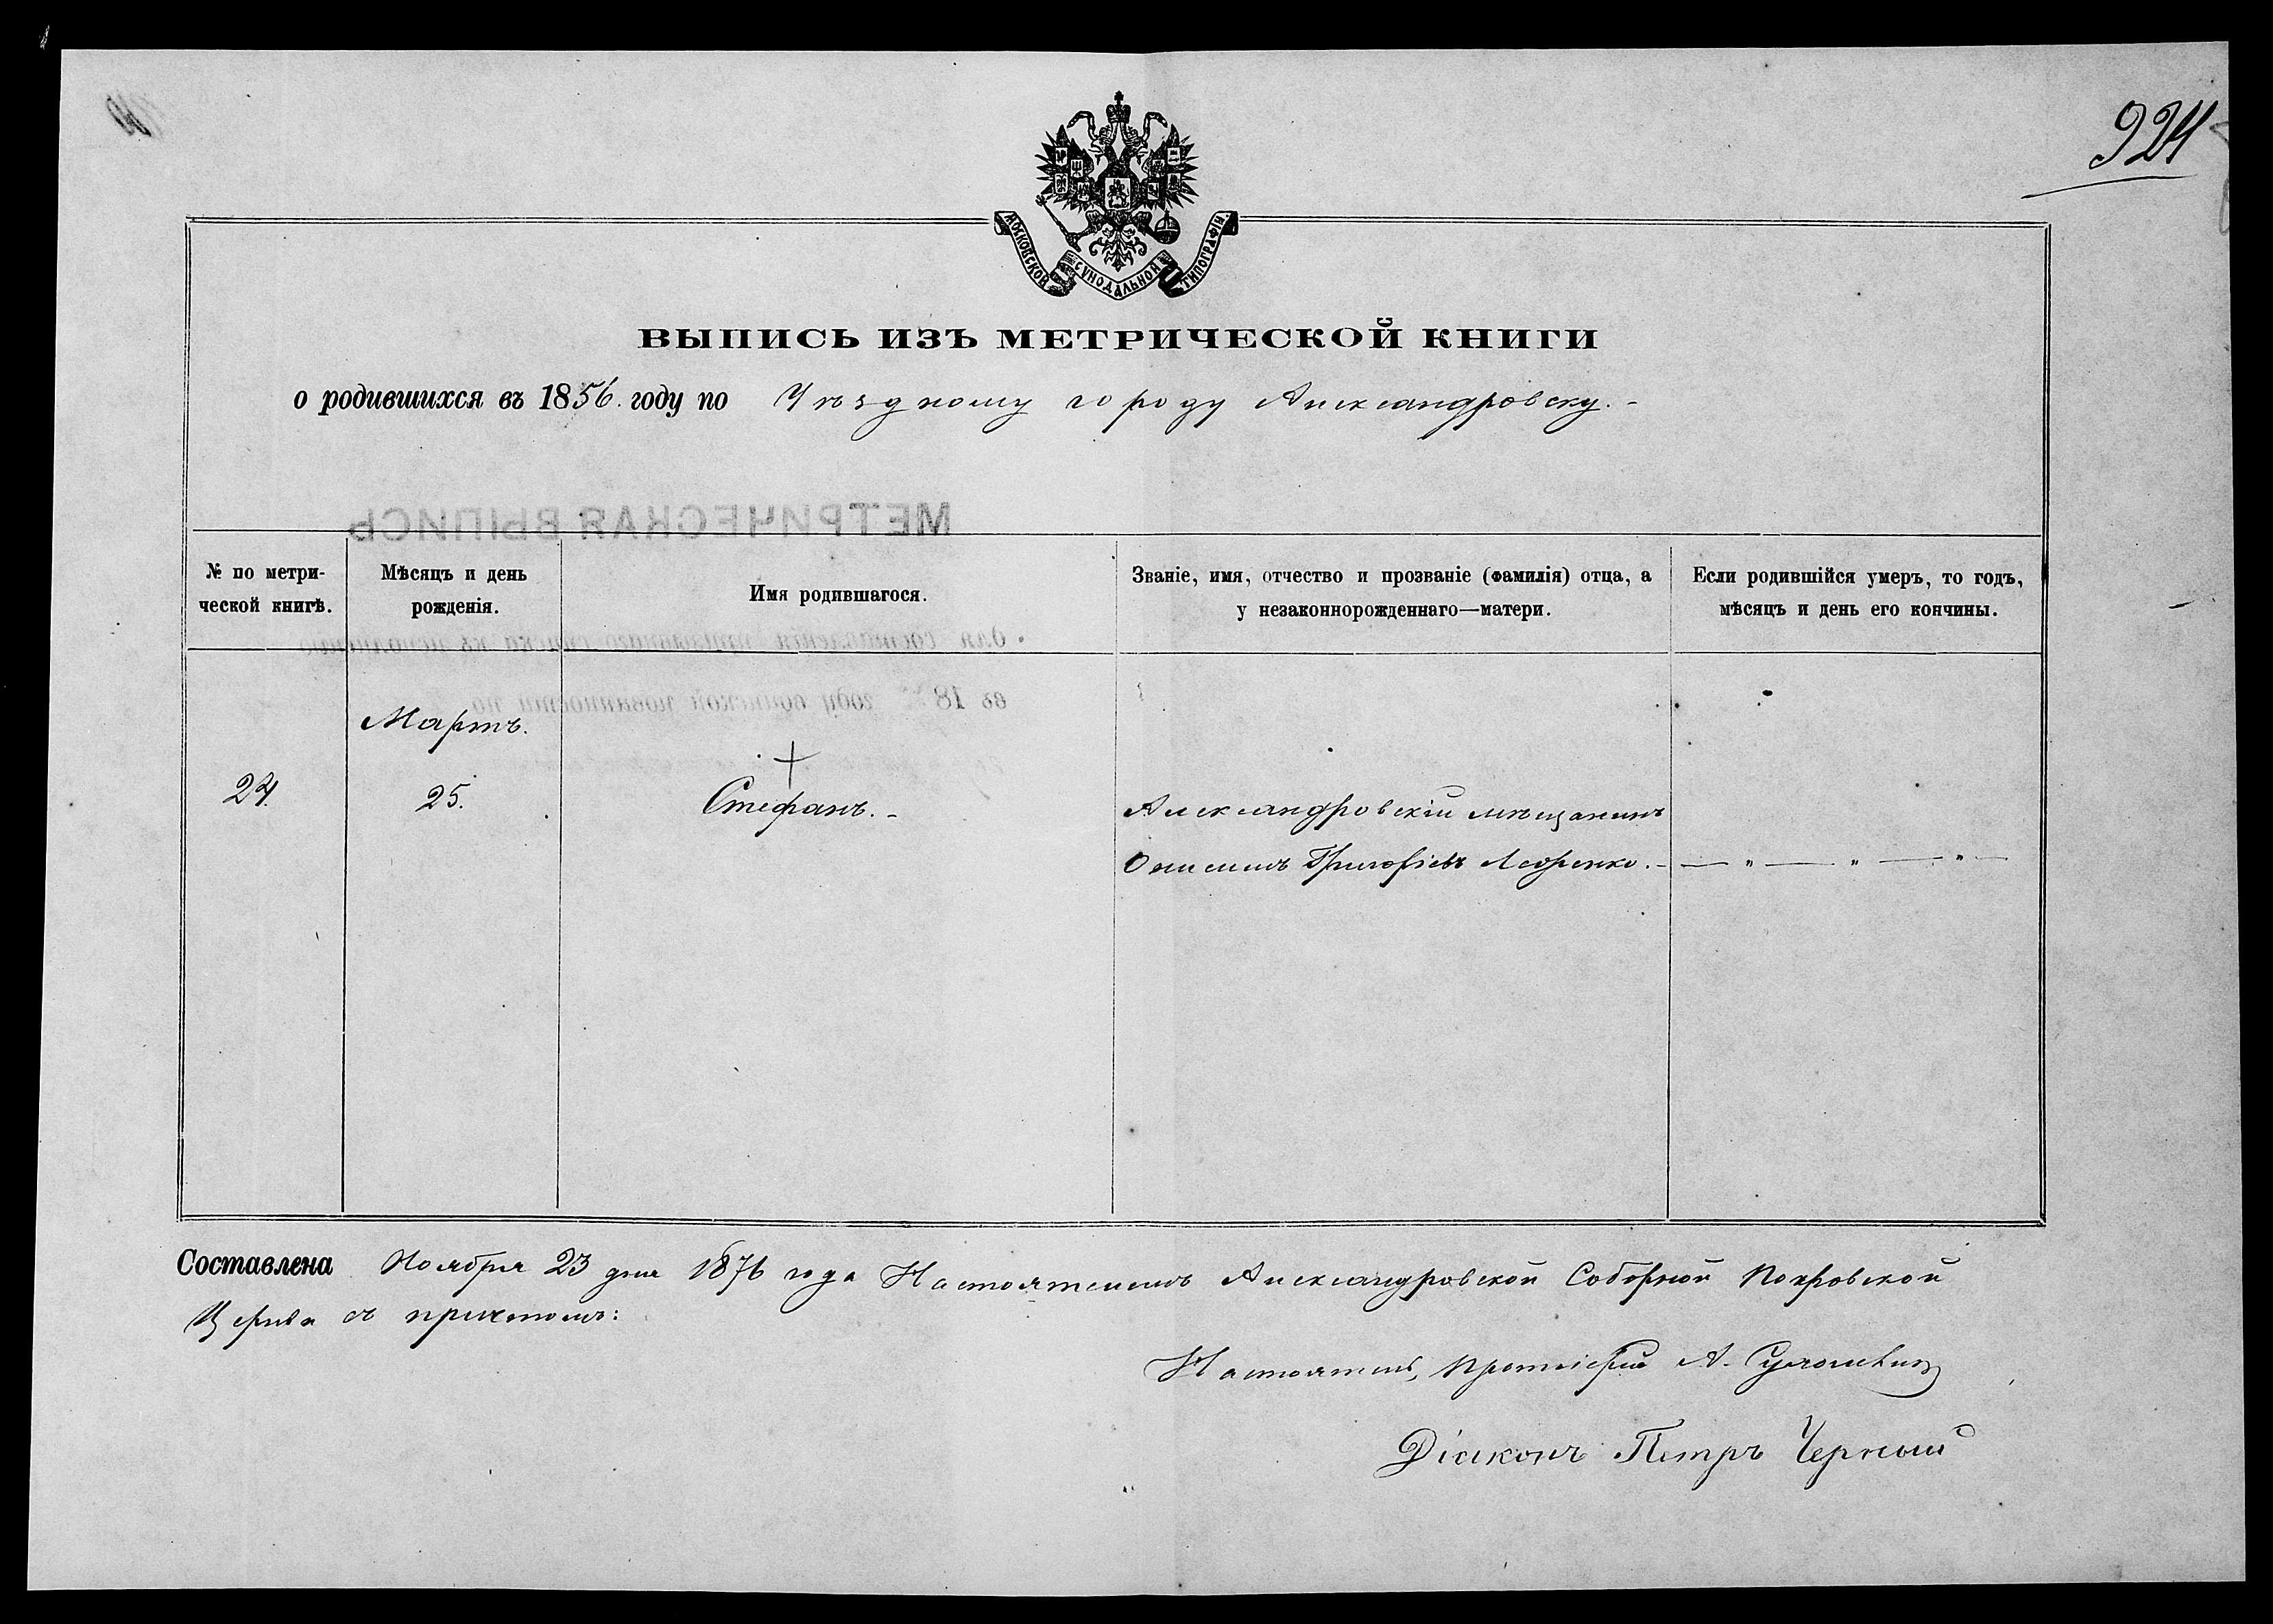 924
МОСКОВСКОЙ СѴНОДАЛЬНОЙ ТИПОГРАФІИ.
ВЫПИСЬ ИЗЪ МЕТРИЧЕСКОЙ КНИГИ
о родившихся въ 1856. году по Уѣздному городу Александровску. -
МЕТРИЧЕСКАЯ ВЫПИСЬ
№ по метри-
ческой книгѣ.
Мѣсяцъ и день
рожденія.
Имя родившагося.
Званіе, имя, отчество и прозваніе (фамилія) отца, а
у незаконнорожденнаго—матери.
Если родившійся умеръ, то годъ,
мѣсяцъ и день его кончины.
для составленія призывнаго списка къ исполненію
въ 18 году воинской повинности по
Мартъ.
25.
Стефанъ. -
Александровскій мѣщанинъ
Онисимъ Григорьевъ — " — " — " —
Составлена Ноября 23 дня 1876 года Настоятелемъ Александровской Соборной Покровской
Церкви съ причтомъ:
Настоятель, Протоіерей А.
Діаконъ Петръ Черный